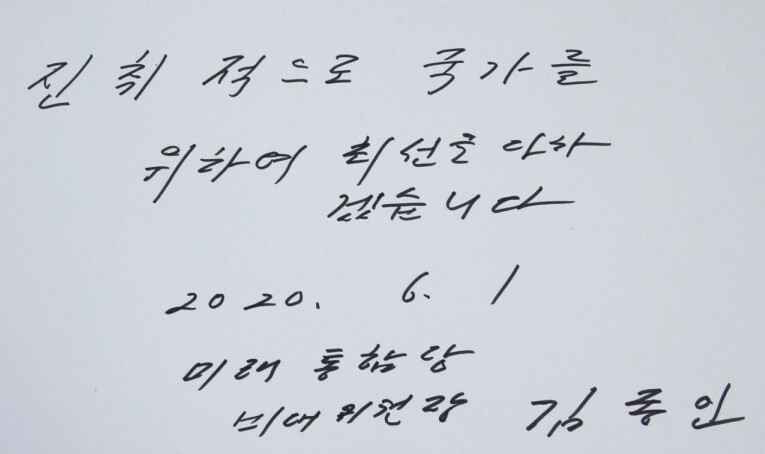 진취적으로 국가를
위하여 최선을 다하
겠습니다
2020. 6. 1
미래통합당
비대위원장 김종인